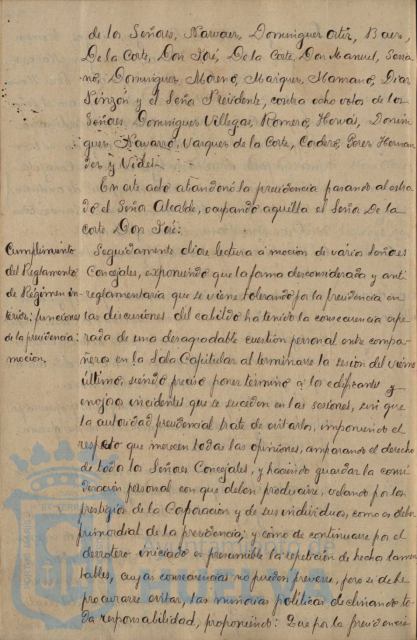 de los Señores, Narvaez, Dominguez Ortiz, Baez,
De la Corte, Don José, De la Corte, Don Manuel, Serra
no, Dominguez Moreno, Marquez, Mamano, Diaz
Pinzón y el Señor Presidente, contra ocho votos de los
Señores Dominguez Villegas, Romero, Hervás, Domin
guez, Navarro, Vazquez de la Corte, Cordero, Perez Hernan
dez y Vides.
En este acto abandonó la presidencia pasando al estra
do el Señor Alcalde, ocupando aquella el Señor De la
Corte Don José:
Cumplimiento
del Reglamento
de Régimen in
terior: funciones
de la presidencia:
moción.
Seguidamente dióse lectura á moción de varios Señores
Concejales, exponiendo que la forma desconsiderada y anti
reglamentaria que se viene tolerando por la presidencia en
las discusiones del cabildo ha tenido la consecuencia espe
rada de una desagradable cuestión personal entre compa
ñeros en la Sala Capitular al terminarse la sesión del viernes
último, siendo preciso poner término á los edificantes y
enojosos incidentes que se suceden en las sesiones, sin que
la autoridad presidencial trate de evitarlos, imponiendo el
respeto que merecen todas las opiniones, amparando el derecho
de todos los Señores Concejales, y haciendo guardar la consi
deración personal con que deben producirse, velando por los
prestigios de la Corporación y de sus individuos, como es deber
primordial de la presidencia; y como de continuarse por el
derrotero iniciado es presumible la repetición de hechos lamen
tables, cuyas consecuencias no pueden preverse, pero si debe
procurarse evitar, las minorias politicas declinando to
da responsabilidad, proponiendo: Que por la presidencia